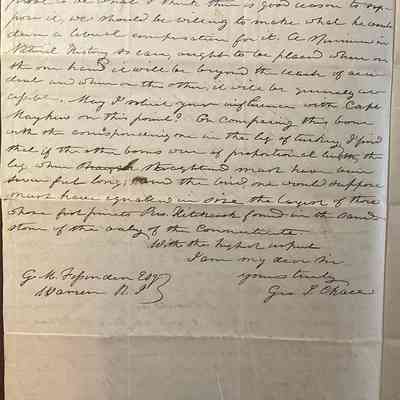 prove to be what I think there is good reason to sup-
pose it, we should be willing to make what he would
deem a liberal compensation for it. A specimen in
Natural History so rare, ought to be placed where on
the one hand it will be beyond the reach of acci-
dent and where on the other, it will be generally ac-
cessible. May I solicit your influence with Capt
Mayhew on this point? On comparing this bone
with the corresponding one in the leg of turkey, I find
that if the other bones were of proportional length, the
leg when straightened must have been
seven feet long; and the bird, one would suppose
must have equaled in size the largest of those
whose foot prints Pres. Hitchcock found in the sand
stone of the valley of the Connecticut.
With the highest respect
I am my dear Sir
yours truly
Geo I Chace
G. M. Fessenden Esq
Warren R. I.